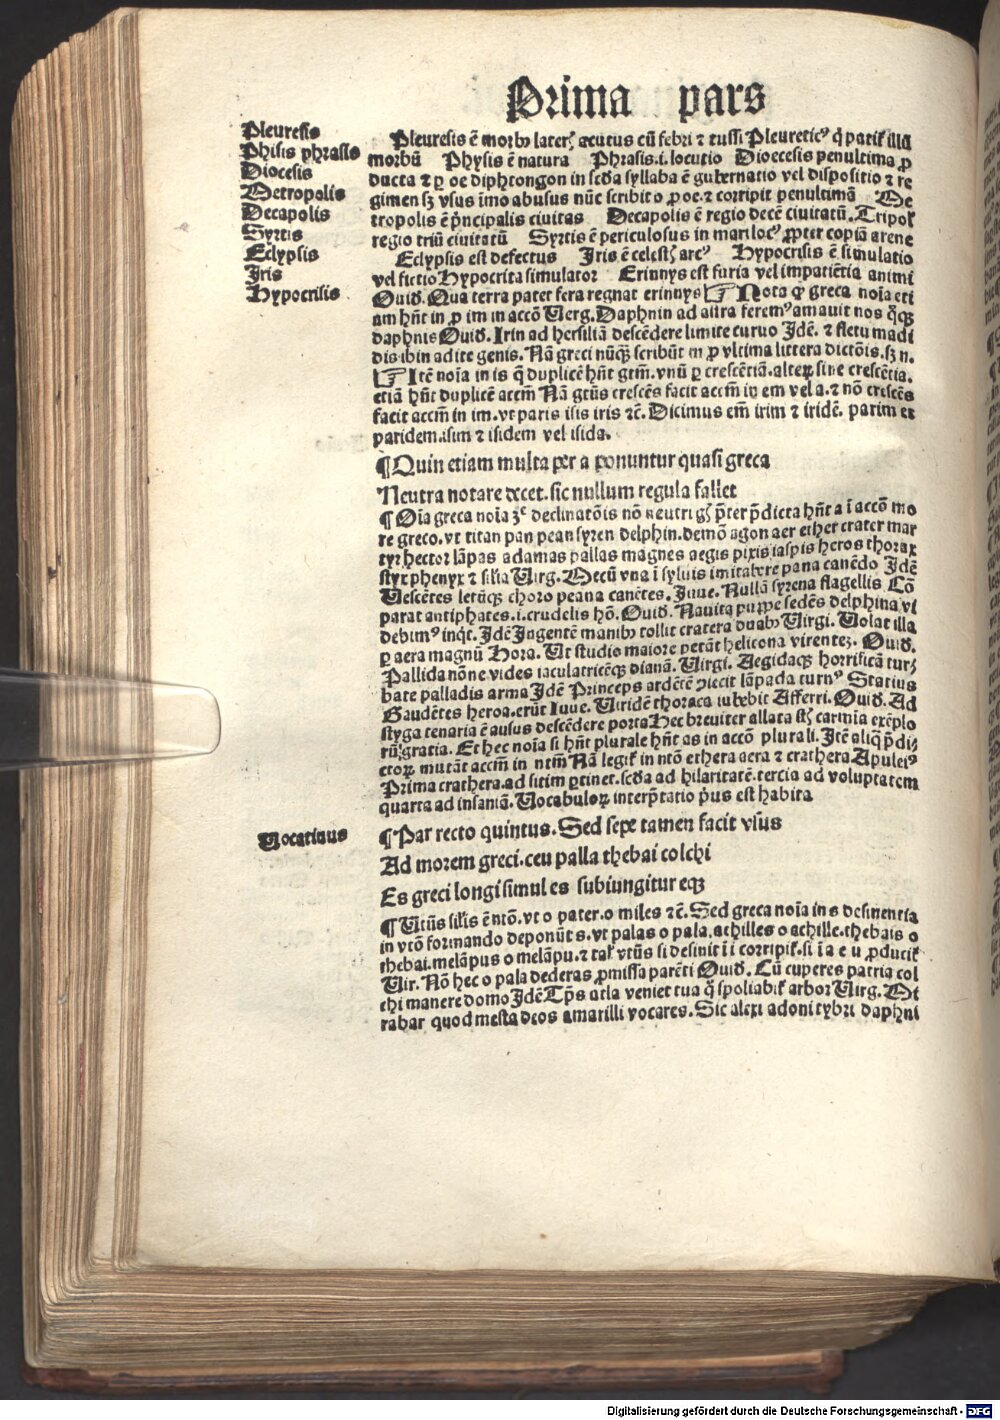 Prima pars
Pleuresis
Phisis phrasis
Diocesis
Metropolis
Decapolis
Syrtis
Eclypsis
Iris
Hypocrisis
Pleuresis ē morbꝰ laterꝭ acutus cū febri ⁊ tussi Pleureticꝰ q̇ patiť illū
morbū Physis ē natura Phrasis .i. locutio Dioecesis penultima ꝓ
ducta ⁊ ꝑ oe diphtongon in scḋa syllaba ē gubernatio vel dispositio ⁊ re
gimen sꝫ vsus imo abusus nūc scribit o ꝓ oe. ⁊ corripit penultimā Me
tropolis ē p̄ncipalis ciuitas Decapolis ē regio decē ciuitatū. Tripoł
regio triū ciuitatū Syrtis ē periculosus in mari locꝰ ꝓpter copiā arene
Eclypsis est defectus Iris ē celestꝭ arcꝰ Hypocrisis ē simulatio
vel fictio Hypocrita simulator Erinnys est furia vel impatiētia animi
Ouiđ. Qua terra patet fera regnat erinnys ☞ Nota ꝙ greca noīa eti
am hn̄t in ꝓ im in accō Uerg. Daphnin ad astra feremꝰ amauit nos q̄qꝫ
daphnis Ouiđ. Irin ad hersiliā descēdere limite curuo Idē. ⁊ fletu madi
dis ibin adite genis. Nā greci nūqꝫ scribūt m ꝓ vltima littera dictōis. sꝫ n.
☞ Itē noīa in is q̄ duplicē hn̄t gtm̄. vnū ꝑ crescētiā. alteꝝ sine crescētia.
etiā hn̄t duplicē accm̄ Nā gtūs crescēs facit accm̄ in em vel a. ⁊ nō crescēs
facit accm̄ in im. vt paris isis iris ⁊c̄. Dicimus em̄ irim ⁊ iridē. parim et
paridem. isim ⁊ isidem vel isida.
¶ Quin etiam multa per a ponuntur quasi greca
Neutra notare decet. sic nullum regula fallet
¶ Oīa greca noīa ꝫᶜ declinatōis nō neutri gꝭ p̄ter p̄dicta hn̄t a ī accō mo
re greco. vt titan pan pean syren delphin. demō agon aer ether crater mar
tyr hector lāpas adamas pallas magnes aegis pixis iaspis heros thorax
styx phenyx ⁊ silia Uirg. Mecū vna ī syluis imitabere pana canēdo Idē
Uescētes letūqꝫ choro peana canētes. Iuue. Nullā syrena flagellis Cō
parat antiphates .i. crudelis hō. Ouiđ. Nauita puppe sedēs delphina vi
debimꝰ inqt. Idē Ingentē manibꝰ tollit cratera duabꝰ Uirgi. Uolat illa
ꝑ aera magnū Hora. Ut studio maiore petāt helicona virentez. Ouiđ.
Pallida nōne vides iaculatricēqꝫ dianā. Uirgi. Aegidaqꝫ horrificā turꝫ
bate palladis arma Idē Princeps ardētē ꝯiecit lāpada turnꝰ Statius
Gaudētes heroa. erūt Iuue. Uiridē thoraca iubebit Afferri. Ouiđ. Ad
styga tenaria ē ausus descēdere porta Hec breuiter allata sꝭt carmīa exēplo
rū gratia. Et hec noīa si hn̄t plurale hn̄t as in accō plurali. Itē aliq̄ p̄diꝫ
ctoꝝ mutāt accm̄ in ntm̄ Nā legiť in ntō ethera aera ⁊ crathera Apuleiꝰ
Prima crathera. ad sitim ꝑtinet. scḋa ad hilaritatē. tercia ad voluptatem
quarta ad insaniā. Uocabuloꝝ interp̄tatio p̄us est habita
Uocatiuus
¶ Par recto quintus. Sed sepe tamen facit vsus
Ad morem greci. ceu palla thebai colchi
Es greci longi simul es subiungitur eqꝫ
¶ Utūs silis ē ntō. vt o pater. o miles ⁊c̄. Sed greca noīa in s desinentia
in vtō formando deponūt s. vt palas o pala. achilles o achille. thebais o
thebai. melāpus o melāpu. ⁊ taꝉ vtūs si desinit ī i corripiť. si ī a e u ꝓduciť
Uir. Nō hec o pala dederas ꝓmissa parēti Ouiđ. Cū cuperes patria col
chi manere domo Idē Tp̄s atla veniet tua q̇ spoliabiť arbor Uirg. Mi
rabar quod mesta deos amarilli vocares. Sic alexi adoni tybri daphni
Digitalisierung gefördert durch die Deutsche Forschungsgemeinschaft - DFG